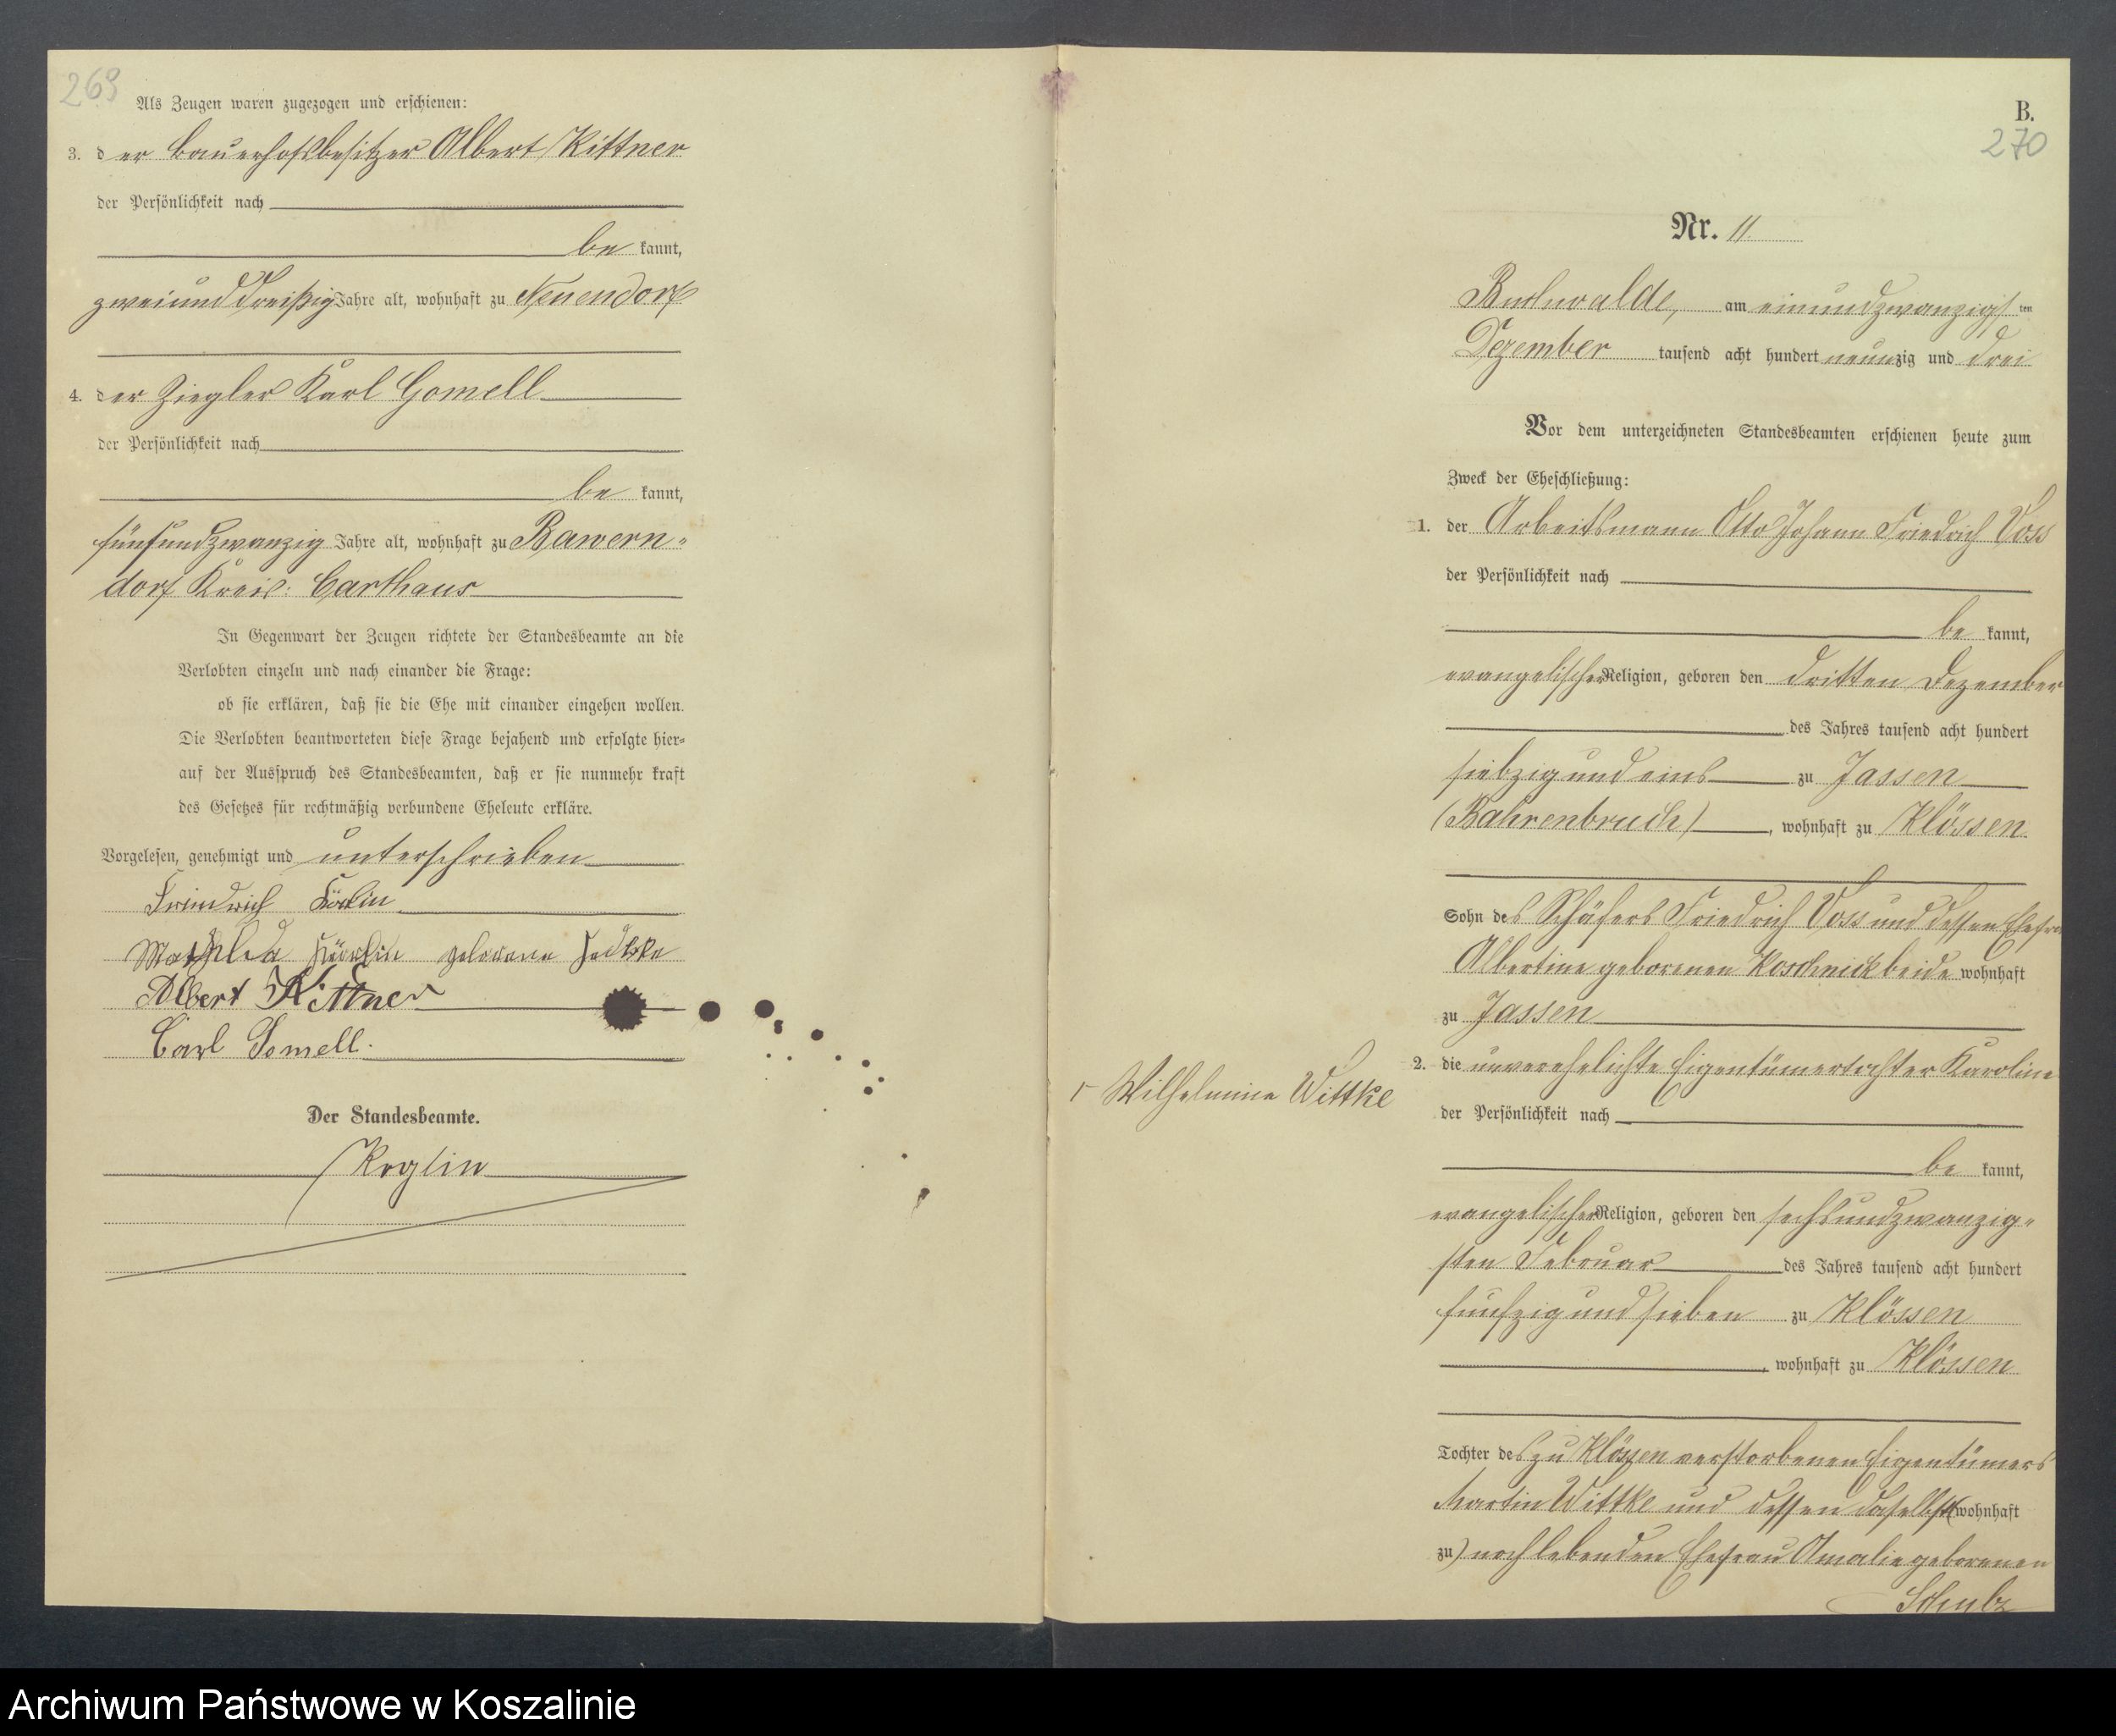 269
Als Zeugen waren zugezogen und erschienen:
3. der Bauerhofsbesitzer Albert Kittner
der Persönlichkeit nach
be kannt,
zweiunddreißig Jahre alt, wohnhaft zu Neuendorf
4. der Ziegler Karl Gomell
der Persönlichkeit nach
be kannt,
fünfundzwanzig Jahre alt, wohnhaft zu Bawern-
dorf Kreis: Carthaus
In Gegenwart der Zeugen richtete der Standesbeamte an die
Verlobten einzeln und nach einander die Frage:
ob sie erklären, daß sie die Ehe mit einander eingehen wollen.
Die Verlobten beantworteten diese Frage bejahend und erfolgte hier-
auf der Ausspruch des Standesbeamten, daß er sie nunmehr kraft
des Gesetzes für rechtmäßig verbundene Eheleute erkläre.
Vorgelesen, genehmigt und unterschrieben
Friedrich
geborene
Albert Kittner
Carl Gomell.
Der Standesbeamte.
Koglin
B.
270
Nr. 11
am einundzwanzigst ten
Dezember tausend acht hundert neunzig und drei
Vor dem unterzeichneten Standesbeamten erschienen heute zum
Zweck der Eheschließung:
1. der Arbeitsmann Otto Johann Friedrich Voss
der Persönlichkeit nach
be kannt,
evangelischer Religion, geboren den dritten Dezember
des Jahres tausend acht hundert
siebzig und eins zu Jassen
(Bahrenbruch), wohnhaft zu Klössen
Sohn des Schäfers Friedrich Voss und dessen Ehefrau
Albertine geborenen Koschnick beide wohnhaft
zu Jassen
2. die unverehelichte Eigentümertochter Karoline
⌈ Wilhelmine Wittke
der Persönlichkeit nach
be kannt,
evangelischer Religion, geboren den sechsundzwanzig-
sten Februar des Jahres tausend acht hundert
fünfzig und sieben zu Klössen
, wohnhaft zu Klössen
Tochter des zu Klössen verstorbenen Eigentümers
Martin Wittke und dessen daselbst (wohnhaft
zu) noch lebenden Ehefrau Amalie geborenen
Schulz
Archiwum Państwowe w Koszalinie